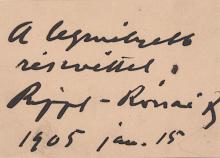 A legmélyebb
részvéttel
Rippl-Rónai J
1905 jan. 15